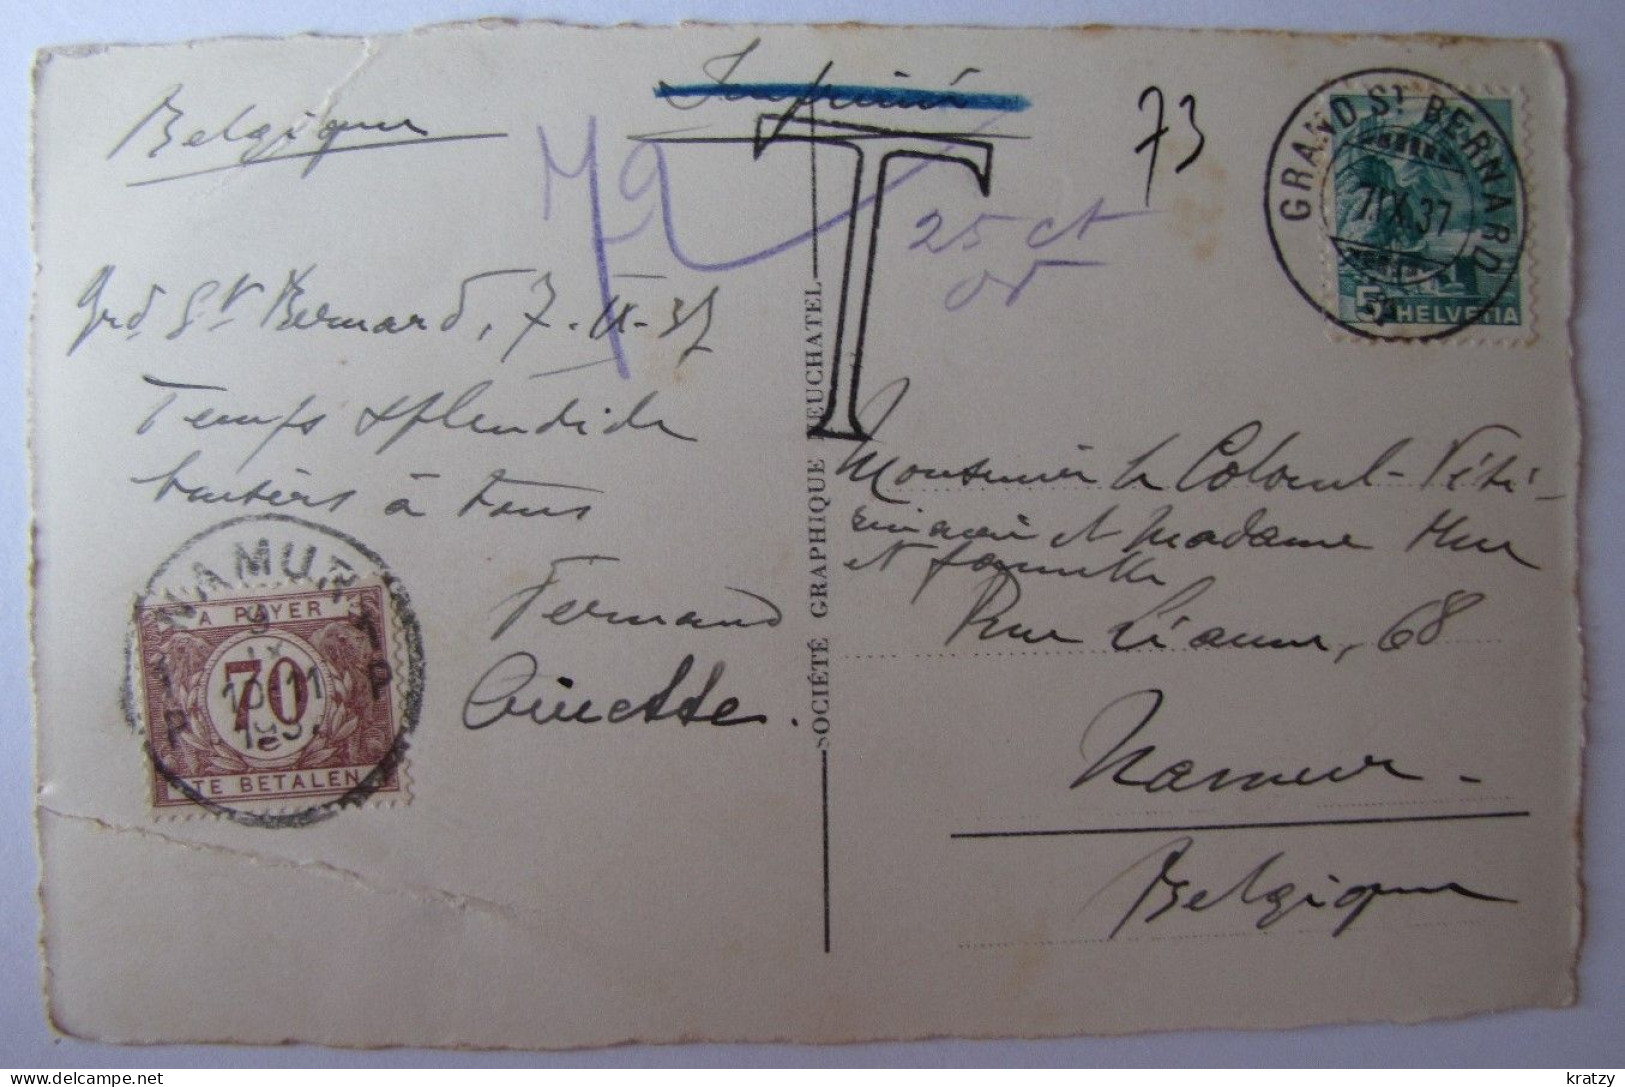 Imprimé
Belgique
73
GRAND ST BERNARD
7.IX.37
5 HELVETIA
T
25 ct
or
Grd St Bernard, 7-IX-37
Temps splendide
baisers à tous
Fernand
Ginette.
NAMUR
A PAYER
9
IX
10-11
70
TE BETALEN
SOCIÉTÉ GRAPHIQUE NEUCHATEL
Monsieur le Colonel-Vété-
rinaire et Madame
et famille
Rue 68
Namur -
Belgique
kratzy